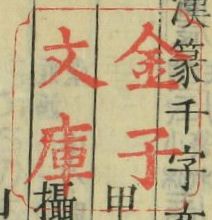 漢篆千字文
金子
文庫
甲
攝